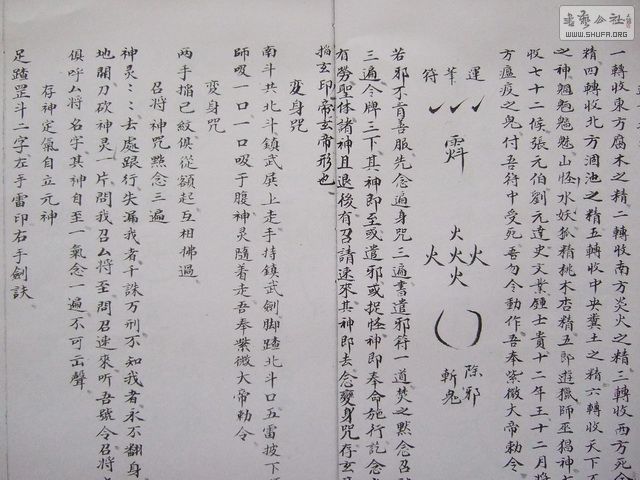 一轉收東方腐木之精二轉收南方炎火之精三轉收西方死金
精四轉收北方涸池之精五轉收中央糞土之精六轉收天下不
之神魍魎魑魅山怪水妖狐精桃木杏精五郎遊獵師巫猖神
收七十二候張元伯劉元達史文業鍾士貴十二年王十二月將
方瘟疫之鬼付吾符中受死吾勿令動作吾奉紫微大帝勅令
運筆符
火火火火火
除邪
斬鬼
若邪不肯善服先念遍身咒三遍書遣邪符一道焚之黙念召
三遍令牌三下其神即至或遣邪或捉怪神即奉命施行訖念
有勞聖体諸神且退後有召請速來其神即去念變身咒存玄
掐玄印帝玄帝形也
變身咒
南斗共北斗鎮武扆上走手持鎮武劍脚踏北斗口五雷披下
師吸一口一口吸于腹神灵隨着走吾奉紫微大帝勅令
變身咒
兩手掐己紋俱從額起互相拂過
召將神咒黙念三遍
神灵去處跟行失漏我者千誅万刑不知我者永不翻身
地開刀砍神灵一片問我召厶將至問召速來听吾號令召將
俱呼厶將名字其神自至一氣念一遍不可出聲
存神定氣自立元神
足踏罡斗二字左手雷印右手劍訣
書藝公社
WWW.SHUFA.ORG